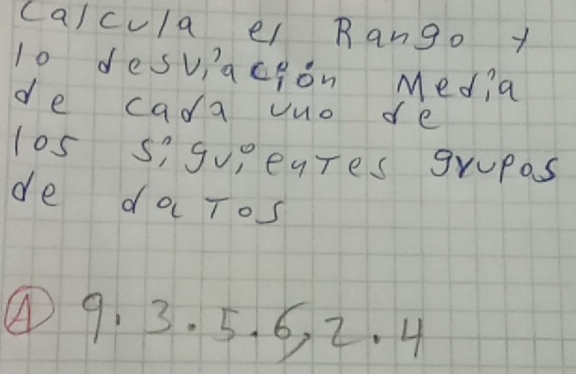 Calcula el Rango y
lo desviación Media
de cada uno de
los siguientes grupos
de datos
A 9. 3. 5. 6, 2. 4